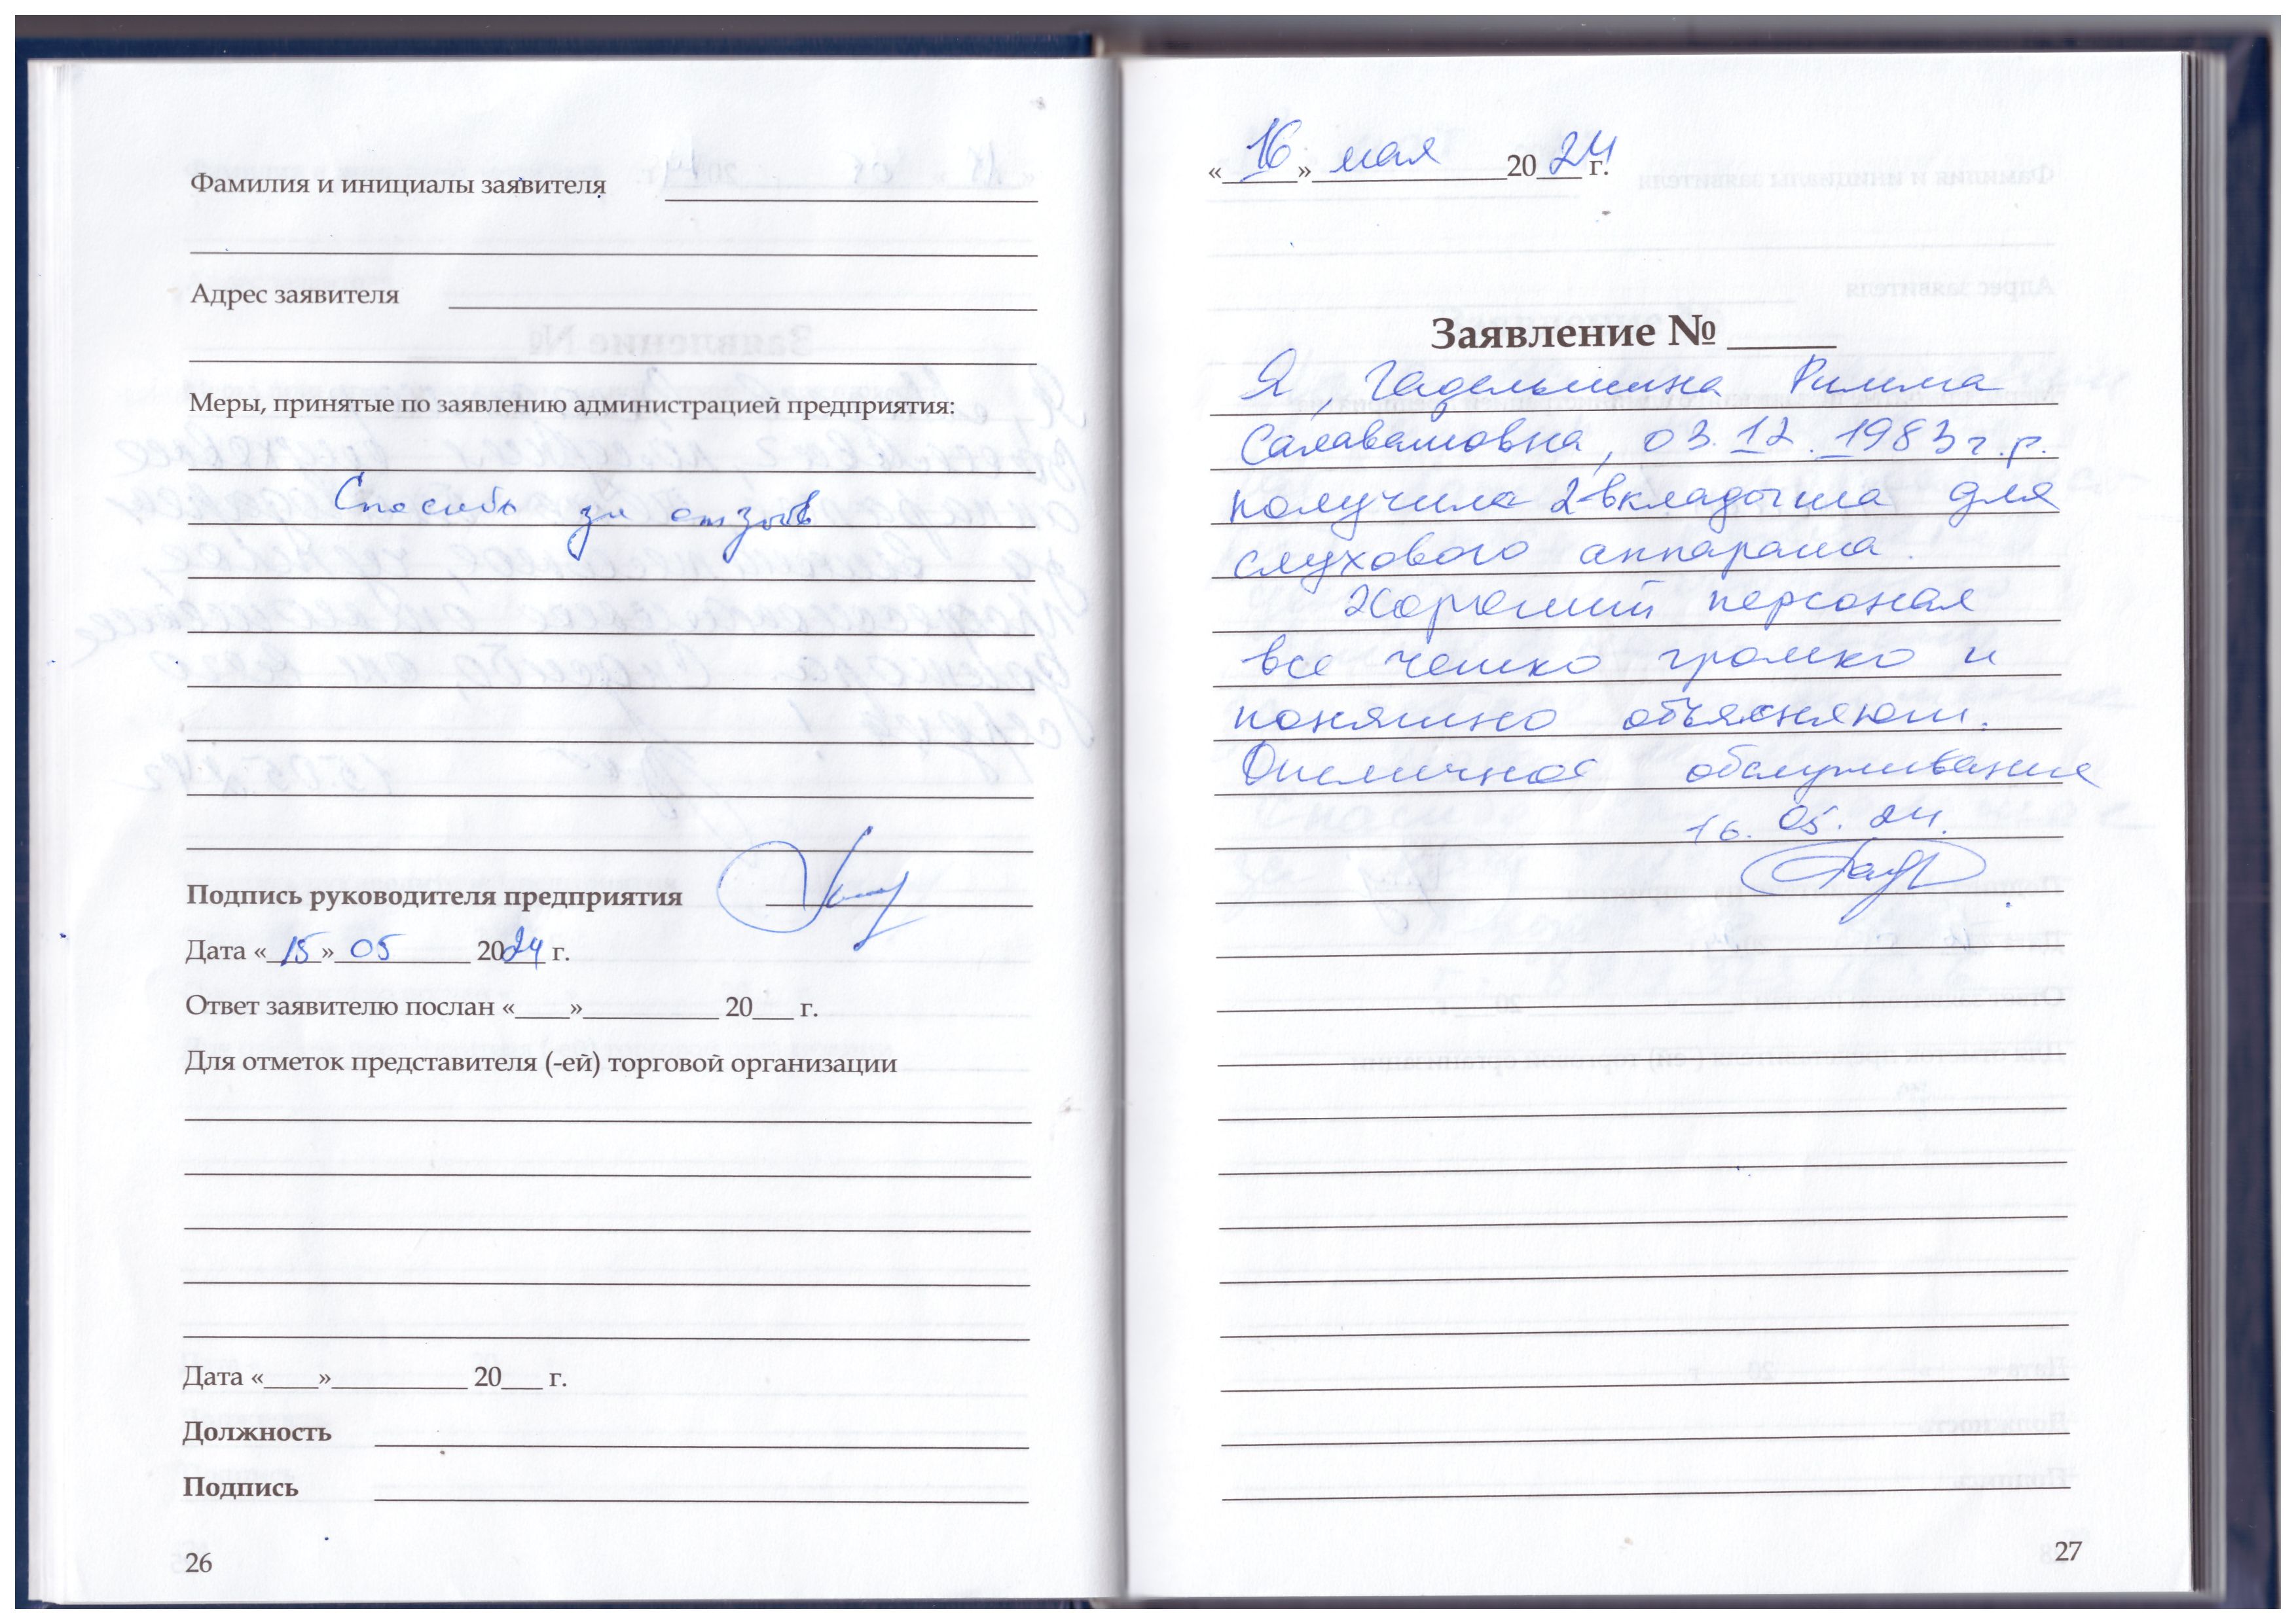 Фамилия и инициалы заявителя
Адрес заявителя
Меры, принятые по заявлению администрацией предприятия:
Спасибо за отзыв
Подпись руководителя предприятия
Дата «15» 05 2024 г.
Ответ заявителю послан «____»____________ 20___ г.
Для отметок представителя (-ей) торговой организации
Дата «____»__________ 20___ г.
Должность
Подпись
26
«16» мая 2024 г.
Заявление № _____
Я, Гадельшина Римма
Салаватовна, 03.12.1983 г.р.
получила 2 вкладыша для
слухового аппарата.
Хороший персонал
все четко громко и
понятно объясняют.
Отличное обслуживание
16. 05. 24.
27